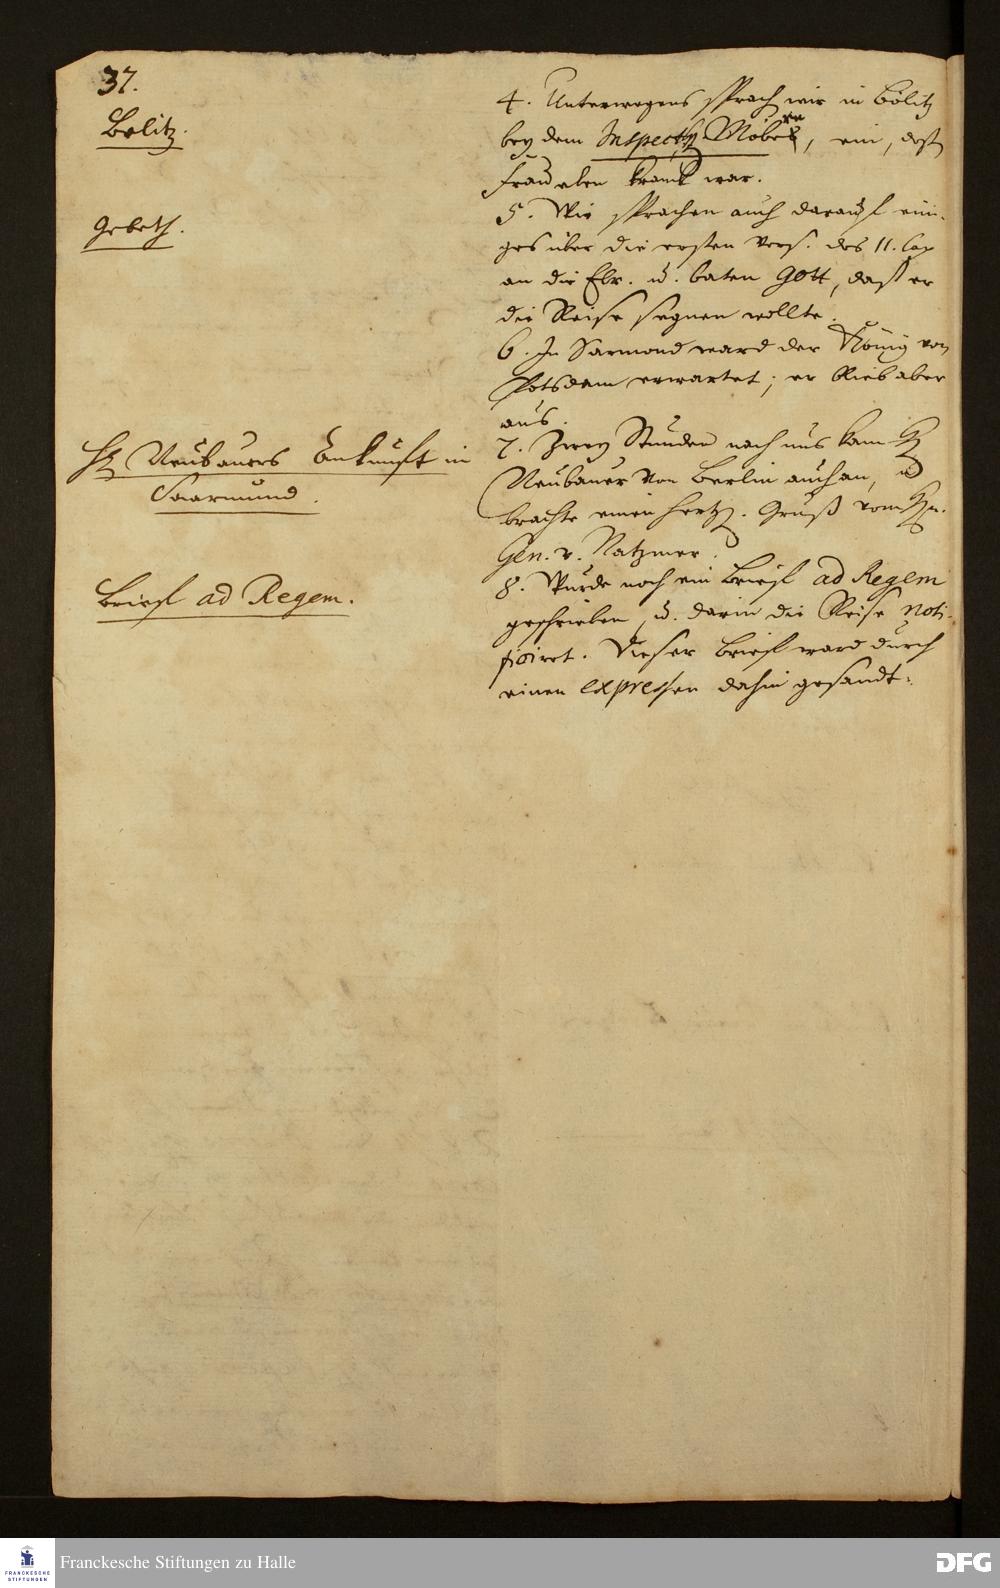 37.
Belitz.
4. Unterwegens sprach wir in Bölitz
bey dem Inspect. Möbes, ein, deß
Frau eben kranck war.
Gebeth.
5. Wir sprachen auch darauf eini-
ges über die ersten vers. des 11. Cap
an die Ebr. u. baten Gott, daß er
die Reise segnen wollte.
6. In Sarmond ward der König von
Potsdam erwartet; er blieb aber
aus.
H. Neubauers Ankunft in
Saarmund.
7. Zwey Stunden nach uns kam H.
Neubauer von Berlin auch an, u
brachte einen hertzl. Gruß vom H.n.
Gen. v. Natzmer.
Brief ad Regem.
8. Wurde noch ein Brief ad Regem
geschrieben, u. darin die Reise noti-
ficiret. Dieser Brief ward durch
einen expressen dahin gesandt.
FRANCKESCHE
STIFTUNGEN
Franckesche Stiftungen zu Halle
DFG